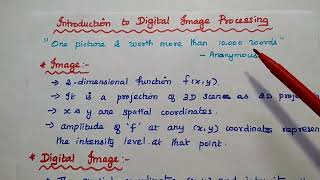 Introduction to Digital Image Processing
"One picture is worth more than 10,000 words"
- Anonymous
* Image:-
→ 2-dimensional function f(x,y).
→ It is a projection of 3D scenes as 2D projection
→ x & y are spatial coordinates.
→ amplitude of 'f' at any (x,y) coordinates represent
the intensity level at that point.
* Digital Image:-